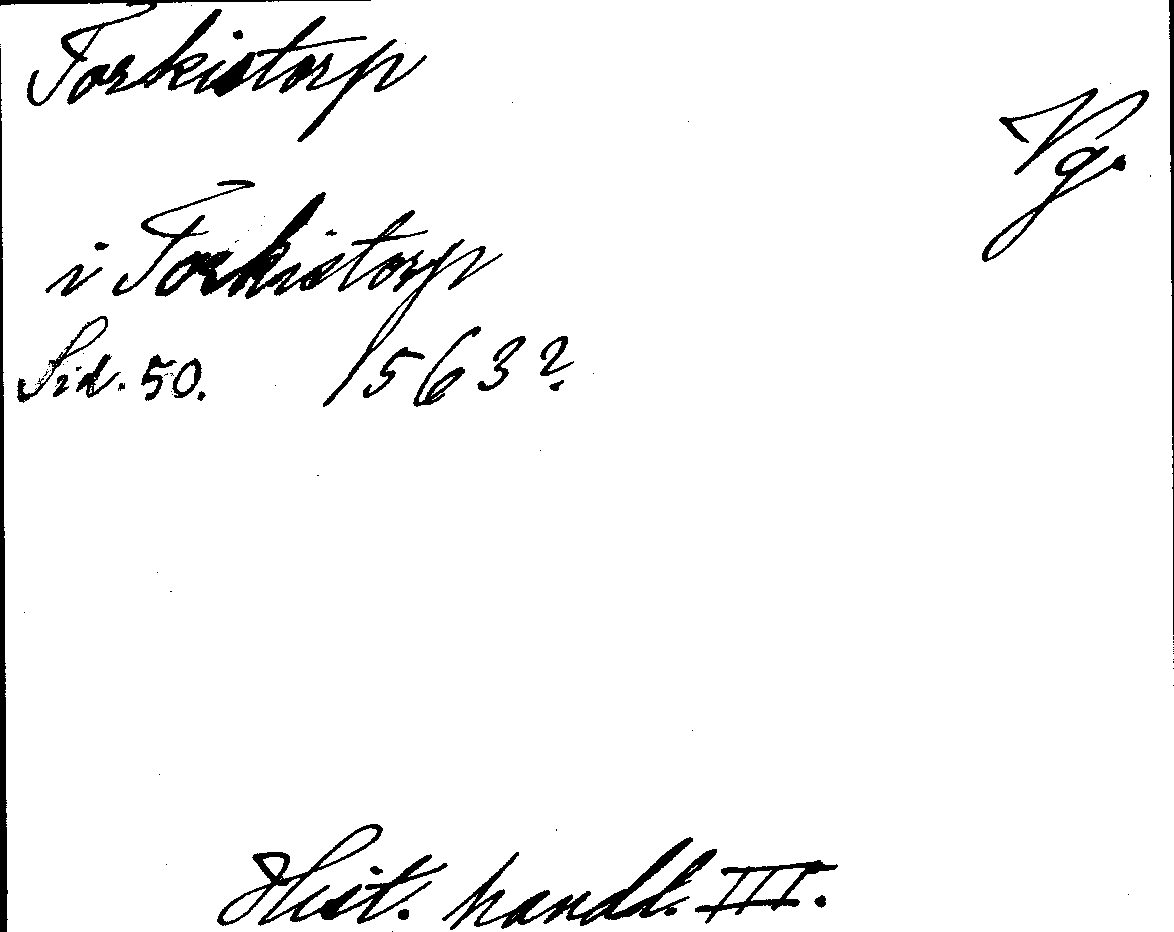 Torkistorp
Vg.
i Torkistorp
Sid. 50. 1563?
Hist. handl. III.